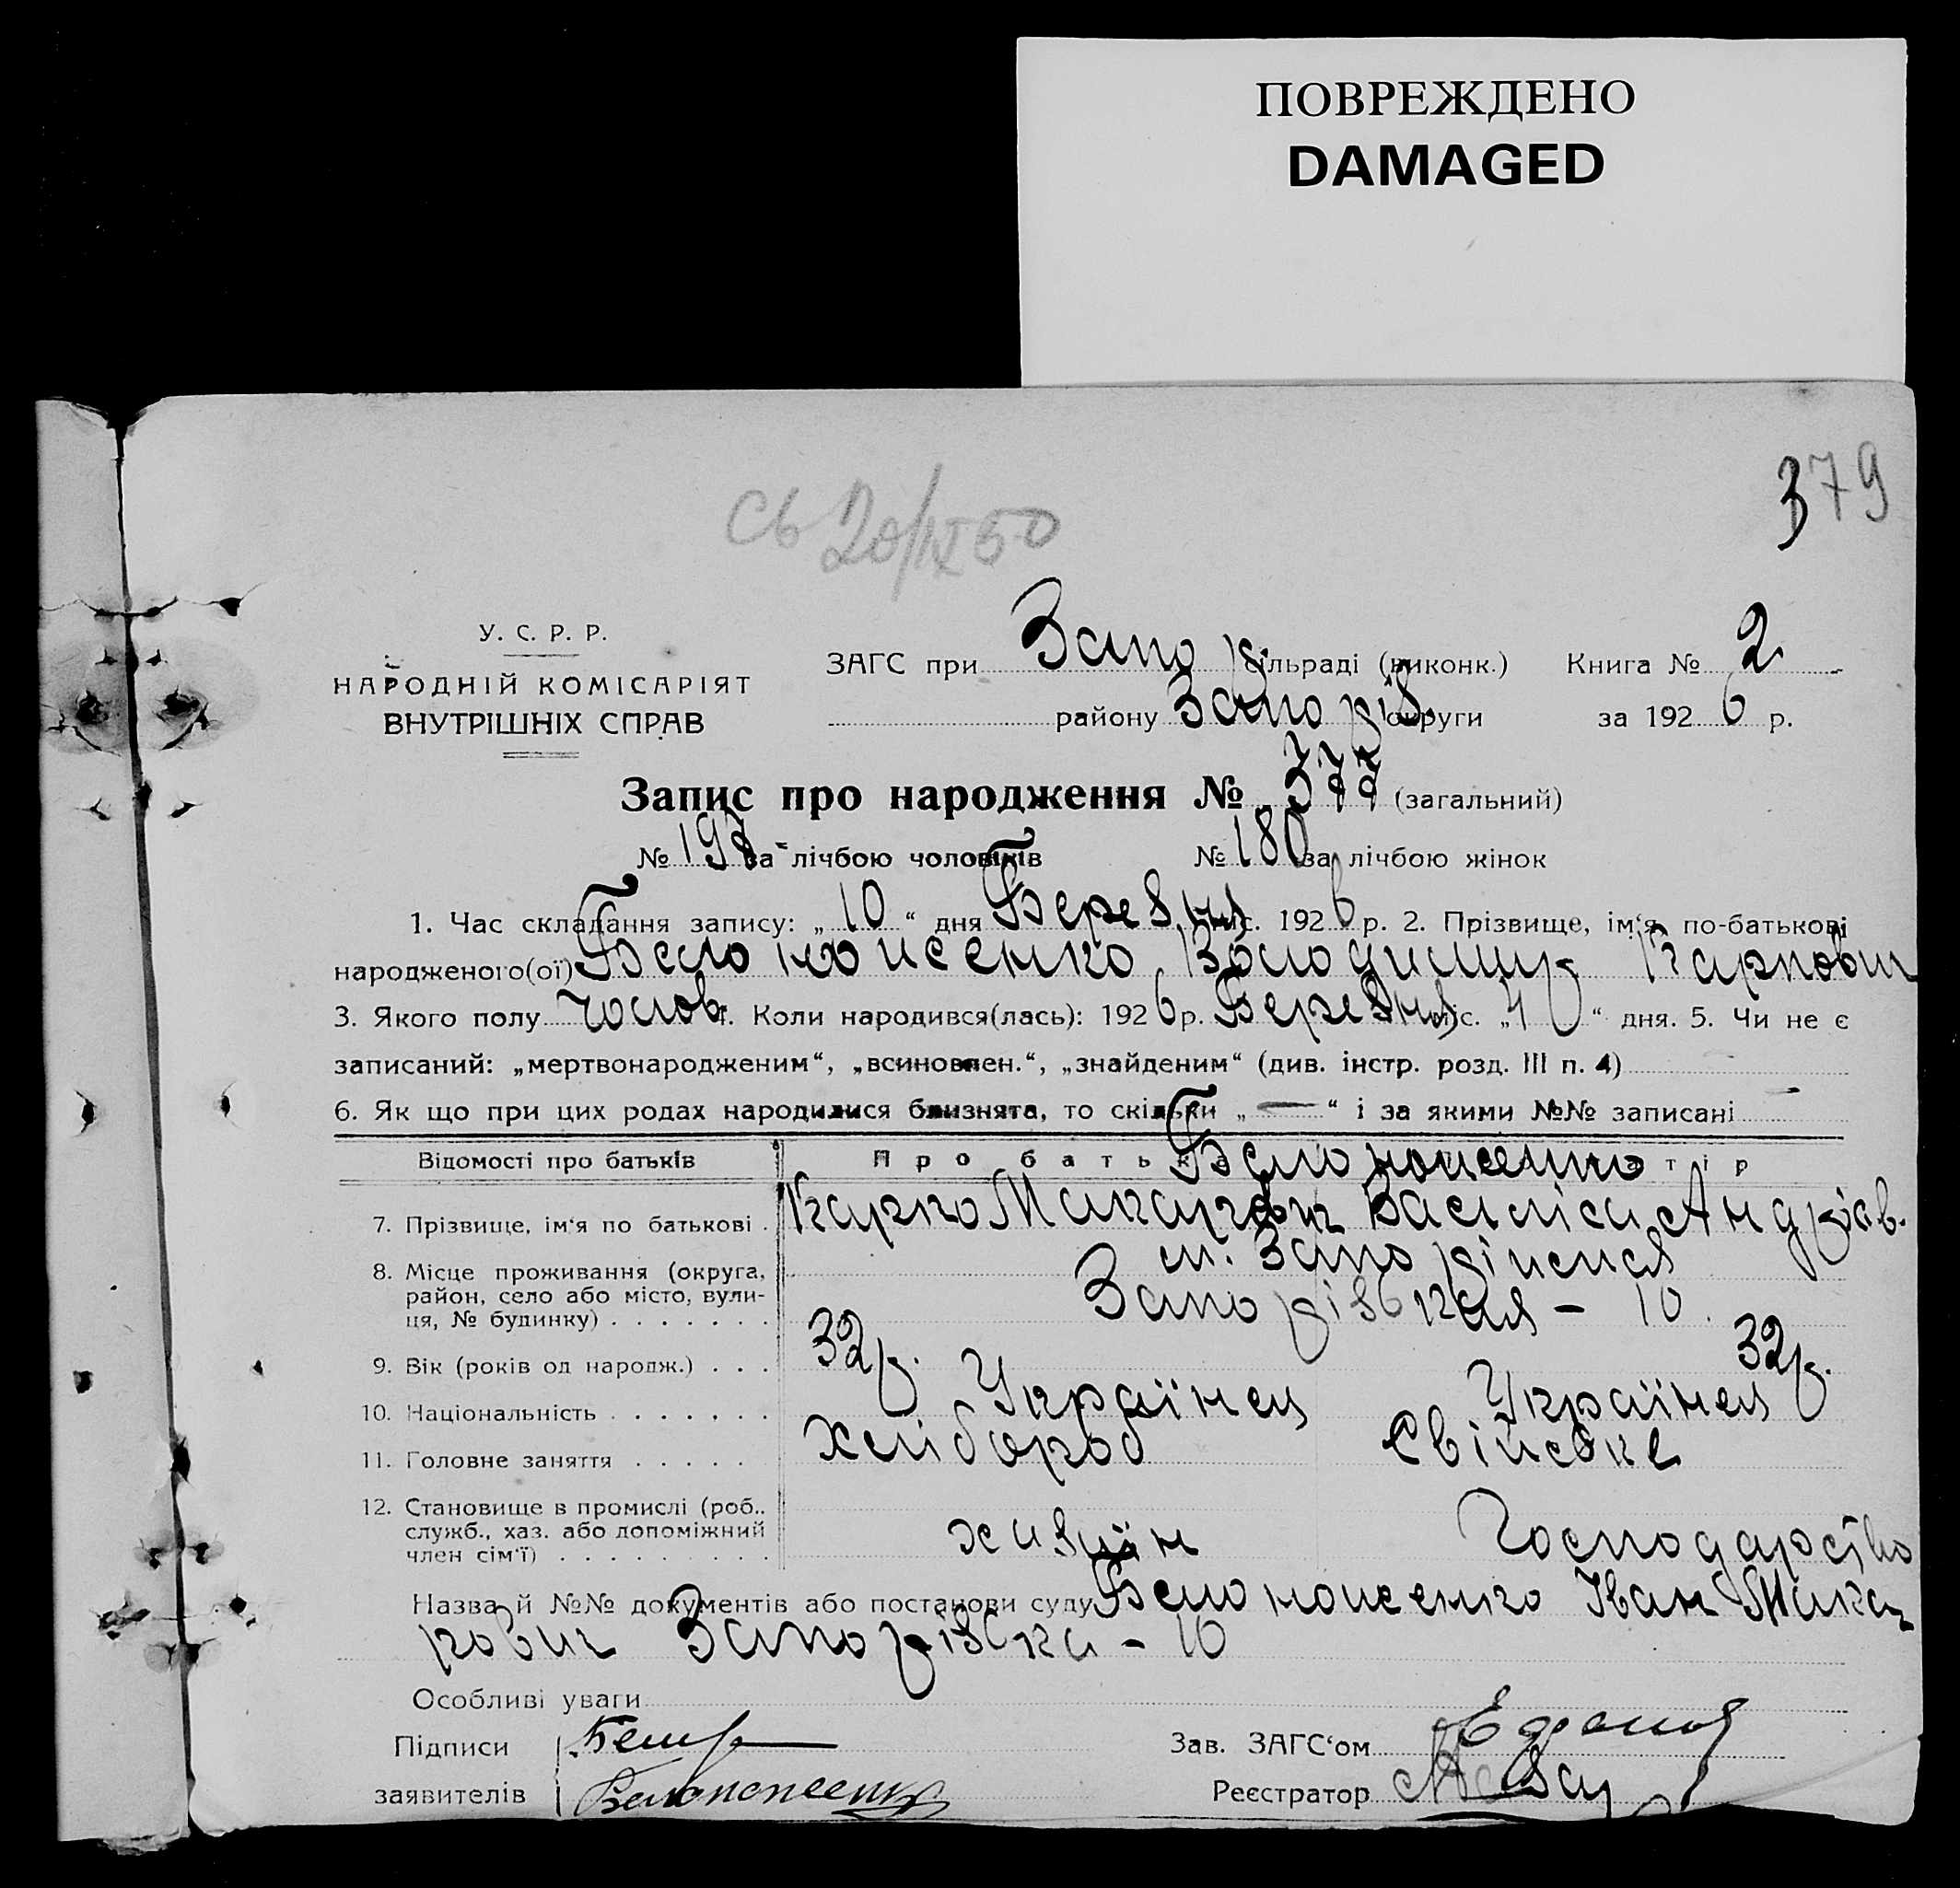 ПОВРЕЖДЕНО
DAMAGED
379
Св 20/IX 50
У. С. Р. Р.
НАРОДНІЙ КОМІСАРІЯТ
ВНУТРІШНІХ СПРАВ
ЗАГС при Запорі сільраді (виконк.) Книга № 2
району Запоріз. округи за 1926 р.
Запис про народження № 377 (загальний)
№ 197 за лічбою чоловіків № 180 за лічбою жінок
1. Час складання запису: „ 10 “ дня Березня міс. 1926 р. 2. Прізвище, ім‘я, по-батькові
народженого(ої) Белоноженко Володимир Карпович
3. Якого полу Чолов. 4. Коли народився(лась): 1926 р. Березня міс. „ “ дня. 5. Чи не є
записаний: „мертвонародженим“, „всиновлен.“, „знайденим“ (див. інстр. розд. III п. 4) —
6. Як що при цих родах народилися близнята, то скільки „ — “ і за якими №№ записані —
Відомості про батьків Про батька Белоноженко матір
7. Прізвище, ім‘я по батькові . Карпо Макарович Василіса Андріїв.
8. Місце проживання (округа, район, село або місто, вулиця, № будинку) . . . . . . . м. Запоріжжя
Запорізькая – 10.
9. Вік (років од народж.) . . . 32 р. 32 р.
10. Національність . . . . . . . Українец Українея
11. Головне заняття . . . . . Хлібороб Свійське
12. Становище в промислі (роб.. служб., хаз. або допоміжний член сім‘ї) . . . . . . . . . . хазяїн Господарство
Назва й №№ документів або постанови суду Белоноженко Іван Мака
рович Запорізька – 10
Особливі уваги
Підписи
Зав. ЗАГС‘ом
заявителів Белоноженко
Реєстратор